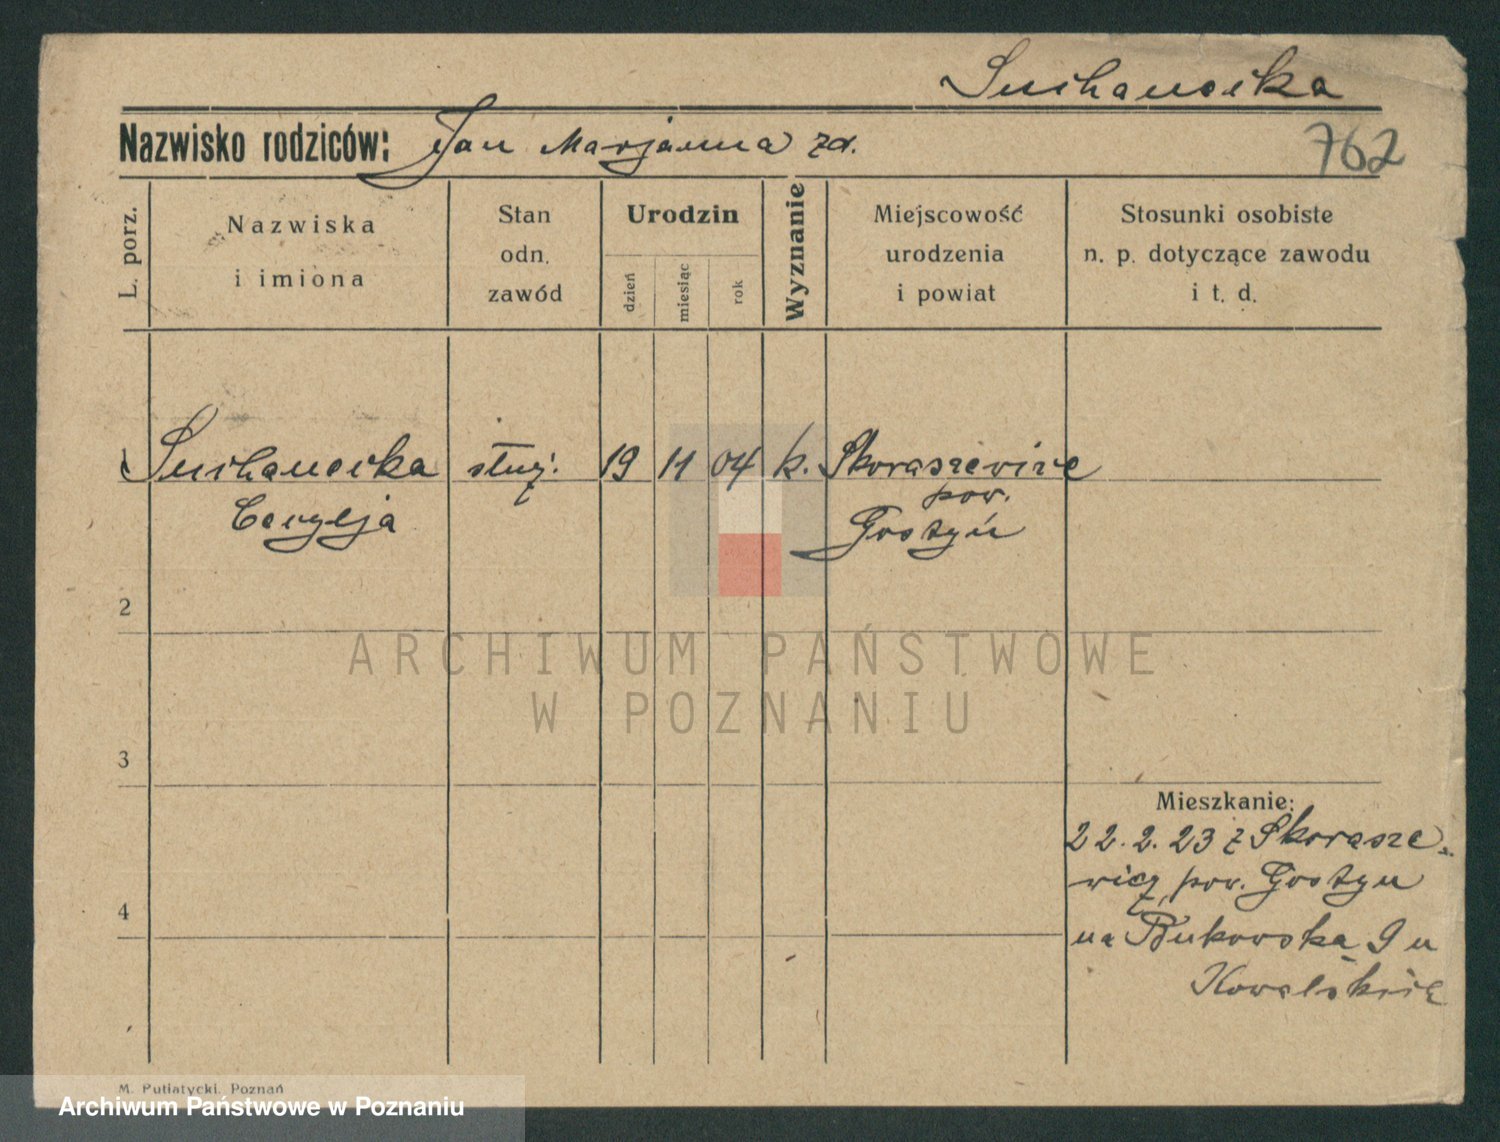 Suchanecka
Nazwisko rodziców: Jan Marjanna zd.
762
L. porz.
Nazwiska
i imiona
Stan
odn.
zawód
Urodzin
dzień
miesiąc
rok
Wyznanie
Miejscowość
urodzenia
i powiat
Stosunki osobiste
n. p. dotyczące zawodu
i t. d.
1 Suchanecka służ. 19 11 04 k. Skoraszewice
Cecylja pow.
Gostyń
2
3
4
Mieszkanie:
22. 2. 23 z Skorasze-
wic, pow. Gostyń
na Bukowska 9 u
M. Putiatycki, Poznań
ARCHIWUM PAŃSTWOWE
W POZNANIU
Archiwum Państwowe w Poznaniu